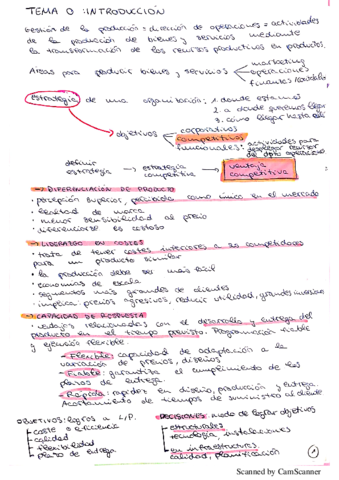 TEMA 0: INTRODUCCIÓN
Gestión de la producción = dirección de operaciones = actividades
de la producción de bienes y servicios mediante
la transformación de los recursos productivos en productos.
Areas para producir bienes y servicios
marketing
operaciones
finanzas
estrategia de una organización: 1. donde estamos
2. a donde queremos llegar
3. cómo llegar hasta allí
objetivos
corporativos
competitivos
funcionales: actividades para
desplegar recursos
del dpto operaciones
definir estrategia → estrategia competitiva → ventaja competitiva
→ DIFERENCIACIÓN DE PRODUCTO
· percepción superior, percibido como único en el mercado
· lealtad de marca
· menor sensibilidad al precio
· diferenciarse es costoso
→ LIDERAZGO EN COSTES
· trata de tener costes inferiores a sus competidores
para un producto similar
· la producción debe ser más
· economías de escala
· segmentos más grandes de clientes
· implica: precios agresivos, reducir utilidad, grandes inversiones
→ CAPACIDAD DE RESPUESTA
· ventajas relacionadas con el desarrollo y entrega del
producto en el tiempo previsto. Programación fiable
y ejecución flexible
Flexible: capacidad de adaptación a la
variación de precios, diseños
Fiable: garantiza el cumplimiento de los
plazos de entrega.
Rápida: rapidez en diseño, producción y entrega
Acortamiento de tiempos de suministro al cliente
OBJETIVOS: logros a L/P.
coste o eficiencia
calidad
flexibilidad
plazo de entrega
DECISIONES: modo de lograr objetivos
estructurales
tecnología, instalaciones
en infraestructuras
calidad, planificación
1
Scanned by CamScanner